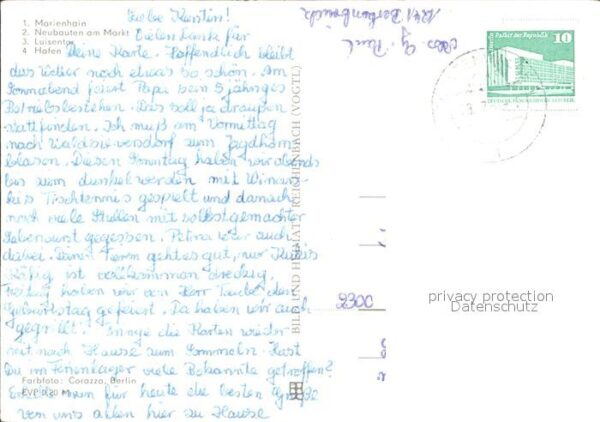 1. Marienhain
2. Neubauten am Markt
3. Luisentor
4 Hafen
Liebe Kerstin!
Vielen Dank für
Deine Karte. Hoffendlich bleibt
das Wetter noch etwas so schön. Am
Sonnabend feiert Papi sein 5 jähriges
Betriebsbestehen. Das soll ja draußen
stattfinden. Ich muß am Vormittag
nach Waldsieversdorf zum Jagdhorn
blasen. Diesen Sonntag haben wir abends
bis zum dunkelwerden mit
Tischtennis gespielt und danach
noch viele Stullen mit selbstgemachter
Leberwurst gegessen. Petra war auch
dabei. geht es gut, nur
Käfig ist vollkommen dreckig.
Freitag haben wir den Herr den
Geburtstag gefeiert. Da haben wir auch
gegrillt. die Karten wieder
mit nach Hause zum Sammeln. Hast
Du im Ferienlager viele Bekannte getroffen?
für heute die besten Grüße
von uns allen hier zu Hause
Farbfoto: Corazza, Berlin
EVP 0,20 M
BILD UND HEIMAT REICHENBACH (VOGTL)
Palast der Republik
10
DEUTSCHE DEMOKRATISCHE REPUBLIK
2300
privacy protection
Datenschutz